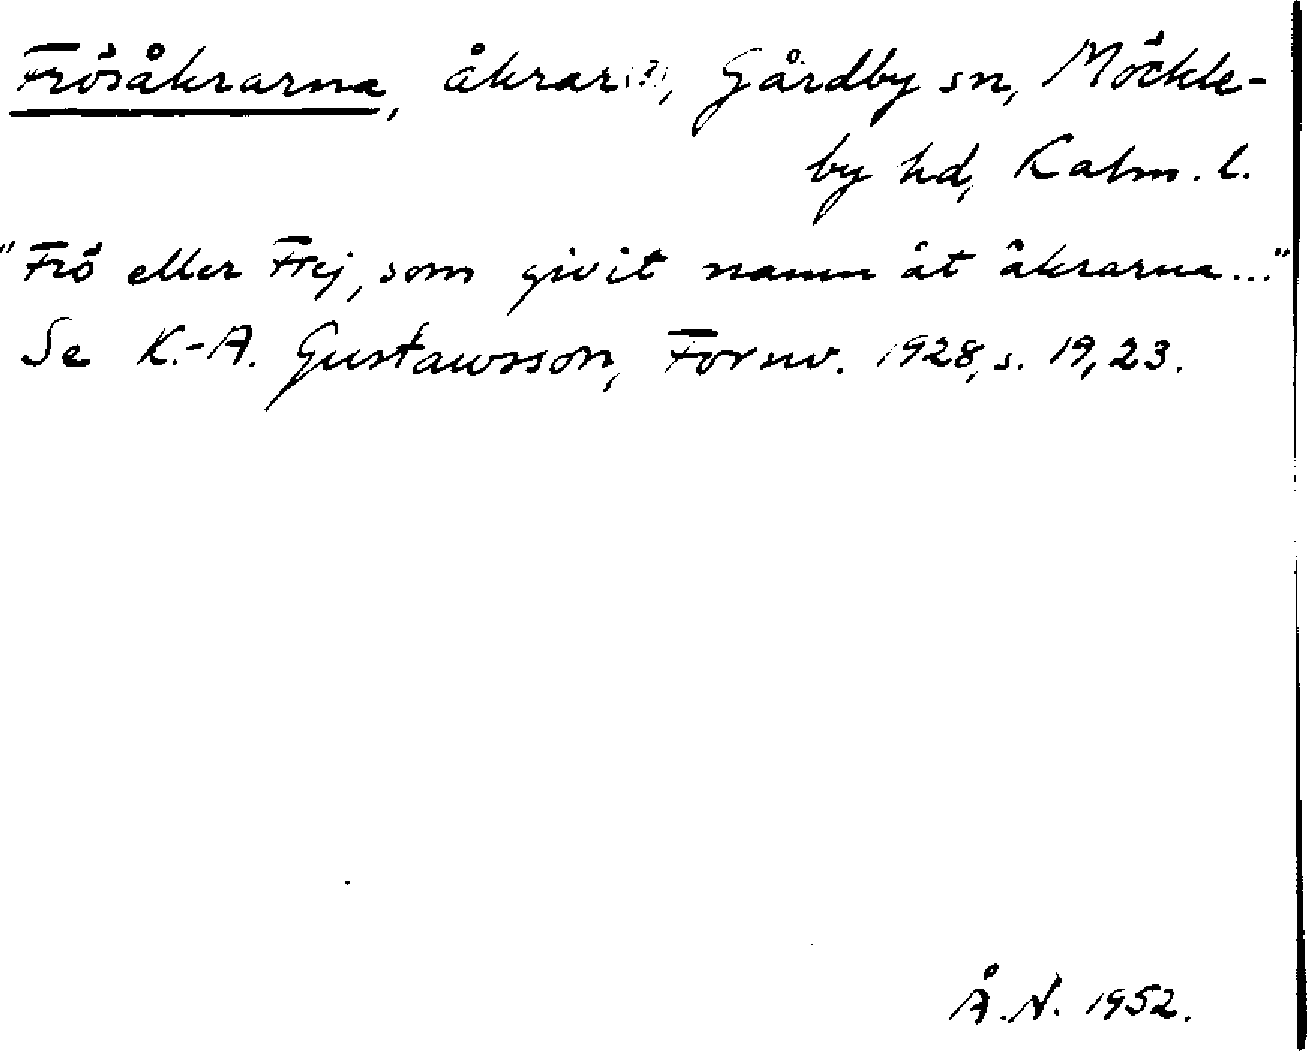 Frösåkrarna, åkrar(?), Gårdby sn, Möckle-
by hd, Kalm. l.
"Frö eller Frej, som givit namn åt åkrarna..."
Se K.-A. Gustawsson, Fornv. 1928, s. 19, 23.
Å.N. 1952.